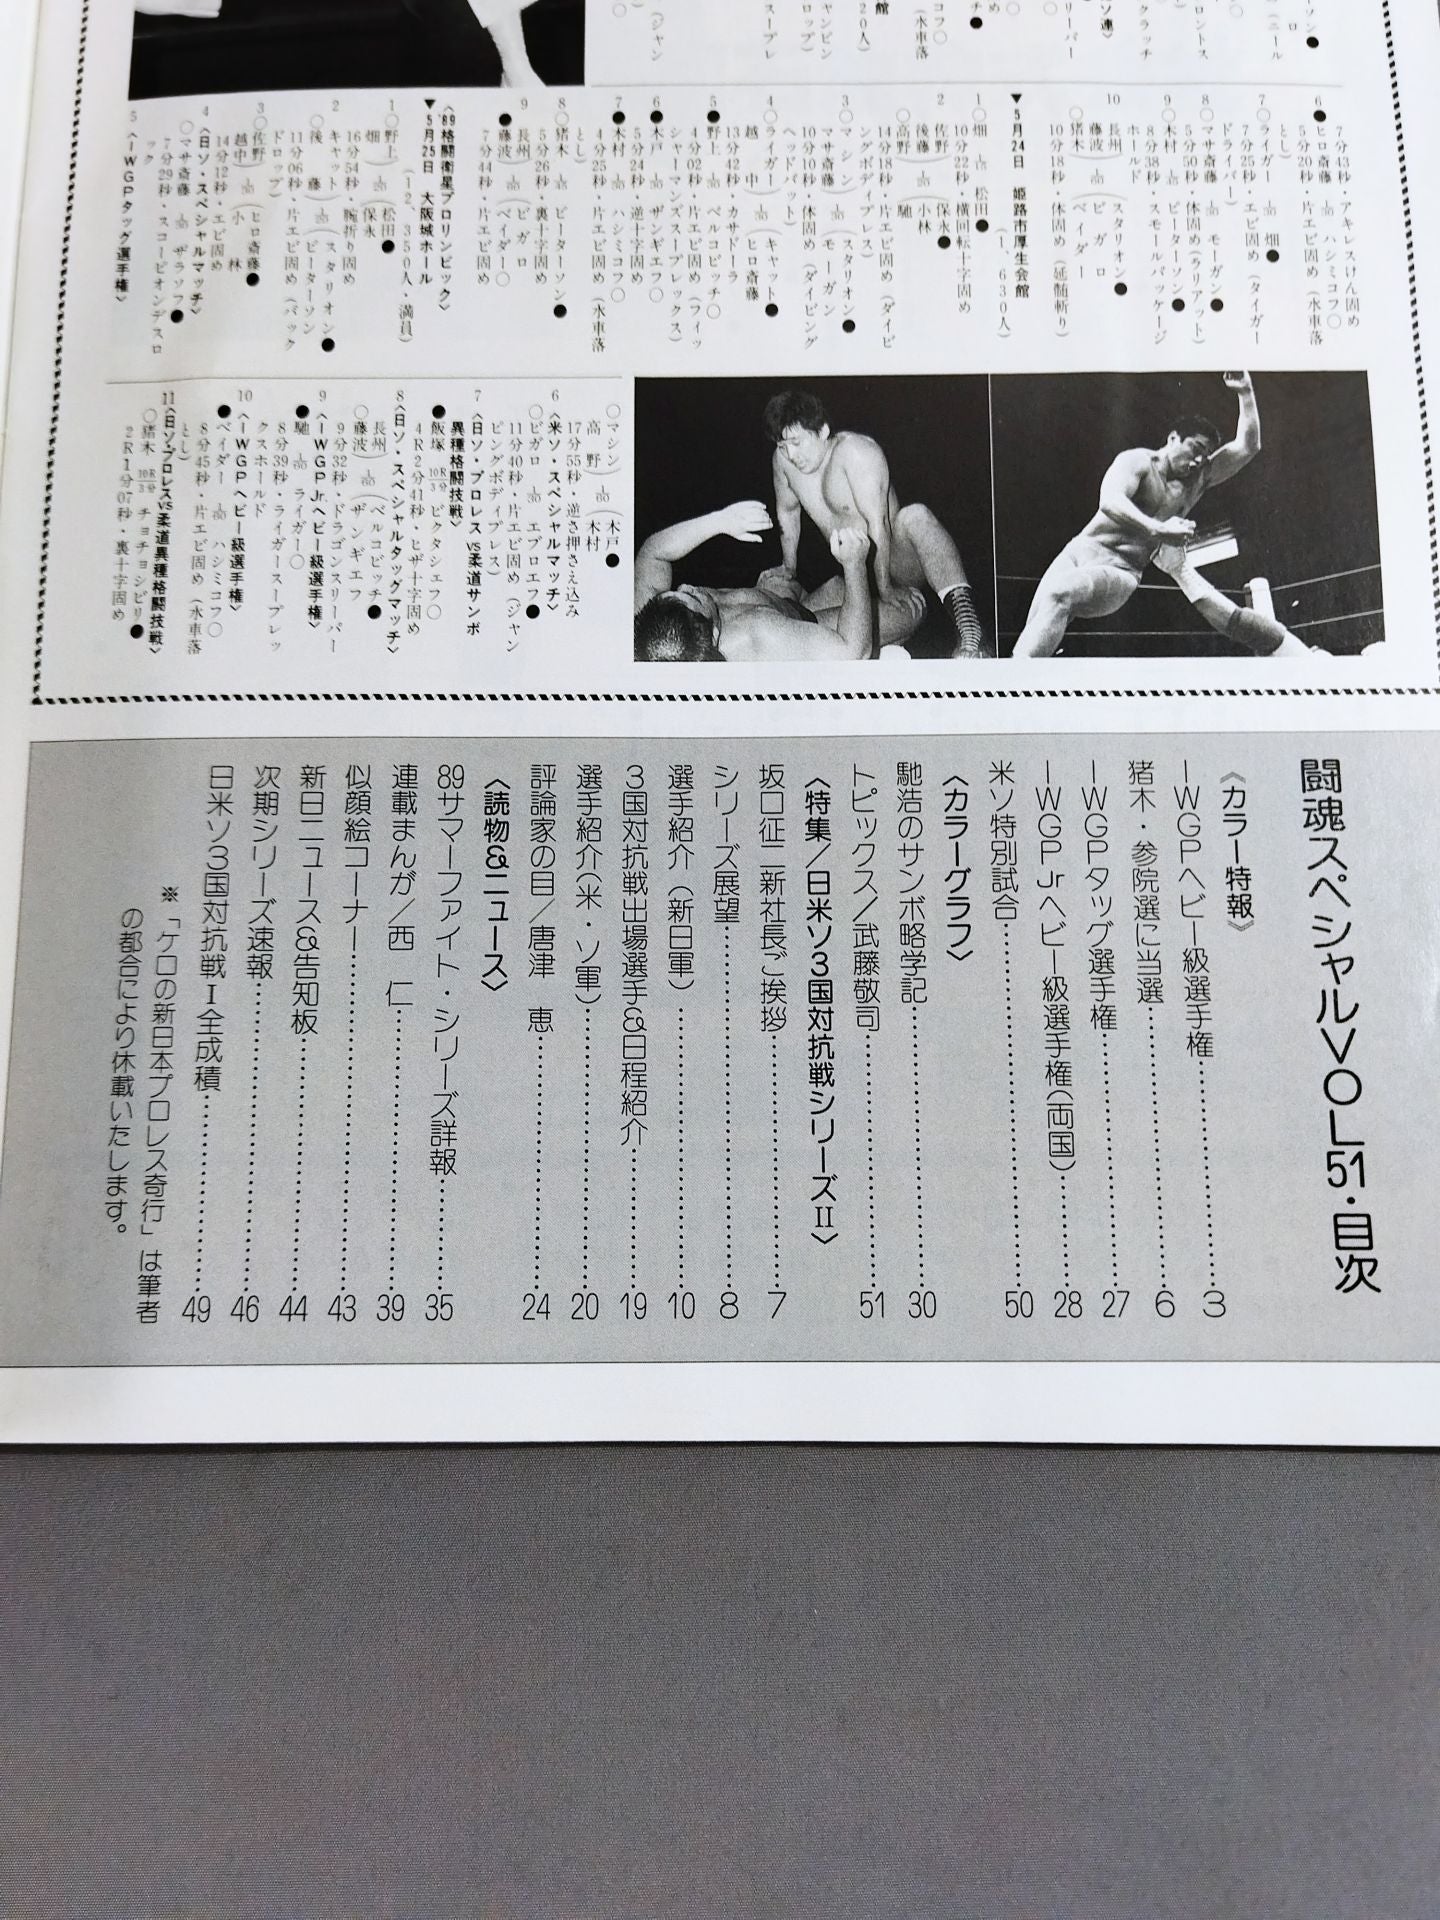 6●ヒロ斎藤
7分43秒・アキレスけん固め
ハシミコフ○
5分20秒・片エビ固め(水車落とし)
7○ライガー 畑●
7分25秒・エビ固め(タイガードライバー)
8○マサ斎藤 モーガン●
5分50秒・体固め(ラリアット)
9○木村 ピーターソン●
8分38秒・スモールパッケージホールド
10 長州 (スタリオン●
藤波) (ビガロ
猪木) (ベイダー
10分18秒・体固め(延髄斬り)
▼5月24日 姫路市厚生会館
(1、630人)
1○畑 松田●
10分22秒・横回転十字固め
2 佐野) (保永●
後藤) (小林
○高野) (馳
14分18秒・片エビ固め(ダイビングボディプレス)
3○マシン) (スタリオン●
マサ斎藤 モーガン
10分10秒・体固め(ダイビングヘッドバット)
4○ライガー) (キャット●
越中) (ヒロ斎藤
13分42秒・カサドーラ
5●野上 ベルコビッチ○
4分02秒・片エビ固め(フィッシャーマンズスープレックス)
6●木戸 ザンギエフ○
5分24秒・逆十字固め
7●木村 ハシミコフ○
4分25秒・片エビ固め(水車落とし)
8○猪木 ピーターソン●
5分26秒・裏十字固め
9 長州) (ビガロ
●藤波) (ベイダー○
7分44秒・片エビ固め
《'89格闘衛星プロリンピック》
▼5月25日 大阪城ホール
(12、350人・満員)
1○野上) (松田●
畑) (保永
16分54秒・腕折り固め
2 キャット) (スタリオン●
○後藤) (ピーターソン
11分06秒・片エビ固め(バックドロップ)
3○佐野) (ヒロ斎藤●
越中) (小林
14分12秒・エビ固め
4〈日ソ・スペシャルマッチ〉
○マサ斎藤 ザラソフ●
7分29秒・スコーピオンデスロック
5〈IWGPタッグ選手権〉
○マシン) (木戸●
高野) (木村
17分55秒・逆さ押さえ込み
6〈米ソ・スペシャルマッチ〉
○ビガロ エブロエフ●
11分40秒・片エビ固め(ジャンピングボディプレス)
7〈日ソ・プロレスvs柔道サンボ異種格闘技戦〉
●飯塚 ビクタシェフ○
4R2分41秒・ヒザ十字固め
8〈日ソ・スペシャルタッグマッチ〉
長州) (ベルコビッチ●
○藤波) (ザンギエフ
9分32秒・ドラゴンスリーパー
9〈IWGP Jrヘビー級選手権〉
●馳 ライガー○
8分39秒・ライガースープレックスホールド
10〈IWGPヘビー級選手権〉
●ベイダー ハシミコフ○
8分45秒・片エビ固め(水車落とし)
11〈日ソ・プロレスvs柔道異種格闘技戦〉
○猪木 チョチョシビリ●
2R1分07秒・裏十字固め
闘魂スペシャルVOL51・目次
《カラー特報》
IWGPヘビー級選手権……3
猪木・参院選に当選……6
IWGPタッグ選手権……27
IWGP Jrヘビー級選手権(両国)……28
米ソ特別試合……50
〈カラーグラフ〉
馳浩のサンボ略学記……30
トピックス/武藤敬司……51
〈特集/日米ソ3国対抗戦シリーズII〉
坂口征二新社長ご挨拶……7
シリーズ展望……8
選手紹介(新日軍)……10
3国対抗戦出場選手&日程紹介……19
選手紹介(米・ソ軍)……20
評論家の目/唐津 恵……24
〈読物&ニュース〉
89サマーファイト・シリーズ詳報……35
連載まんが/西 仁……39
似顔絵コーナー……43
新日ニュース&告知板……44
次期シリーズ速報……46
日米ソ3国対抗戦Ⅰ全成積……49
※「ケロの新日本プロレス奇行」は筆者
の都合により休載いたします。